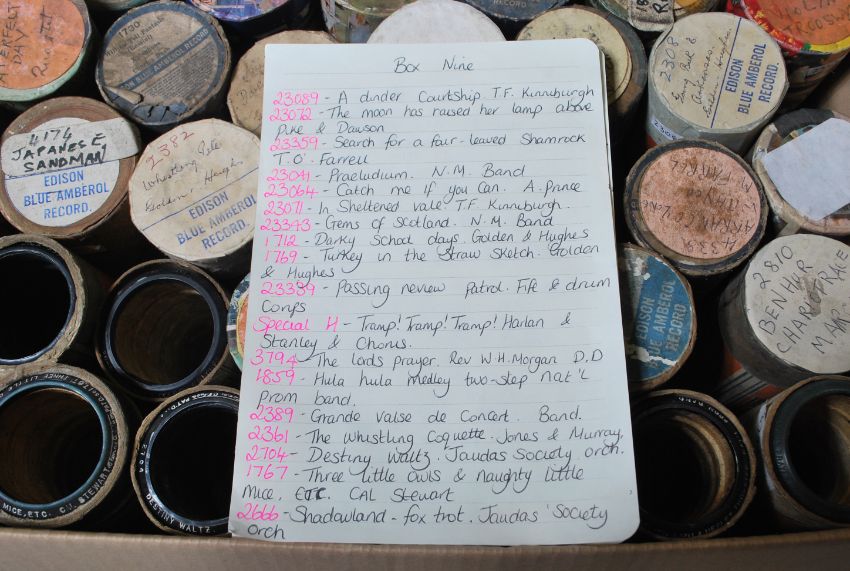 Box Nine
23089 - A dinder Courtship. T.F. Kinniburgh
23072 - The moon has raised her lamp above
Pike & Dawson
23359 - Search for a fair-leaved Shamrock
T.O'. Farrell
23041 - Praeludium. N.M. Band
23064 - Catch me if you Can. A. Prince
23071 - In Sheltered vale T.F. Kinniburgh.
23343 - Gems of Scotland. N.M. Band
1712 - Darky School days. Golden & Hughes
1769 - Turkey in the Straw Sketch. Golden
& Hughes
23339 - Passing review Patrol. Fife & drum
Corps
Special H - Tramp! Tramp! Tramp! Harlan &
Stanley & Chorus.
3794 - The lords prayer. Rev W.H. Morgan D.D
1859 - Hula hula medley two-step nat'l
Prom band.
2389 - Grande valse de Concert. Band.
2361 - The whistling Coquette. Jones & Murray
2704 - Destiny waltz. Jaudas Society orch.
1767 - Three little owls & naughty little
Mice, ETC. CAL Stewart
2666 - Shadowland - fox trot. Jaudas' Society
Orch
1730
BLUE AMBEROL RECORD
4174
JAPANESE
SANDMAN
EDISON
BLUE AMBEROL
RECORD.
2382
Whistling Pete
Golden & Hughes
EDISON
BLUE AMBEROL
RECORD.
2308
EDISON
BLUE AMBEROL
RECORD.
EDISON
BLUE AMBEROL
RECORD
2810
BEN HUR
CHARIOT RACE
MAR
MICE, ETC. C.U. STEWART
DESTINY WALTZ
2704